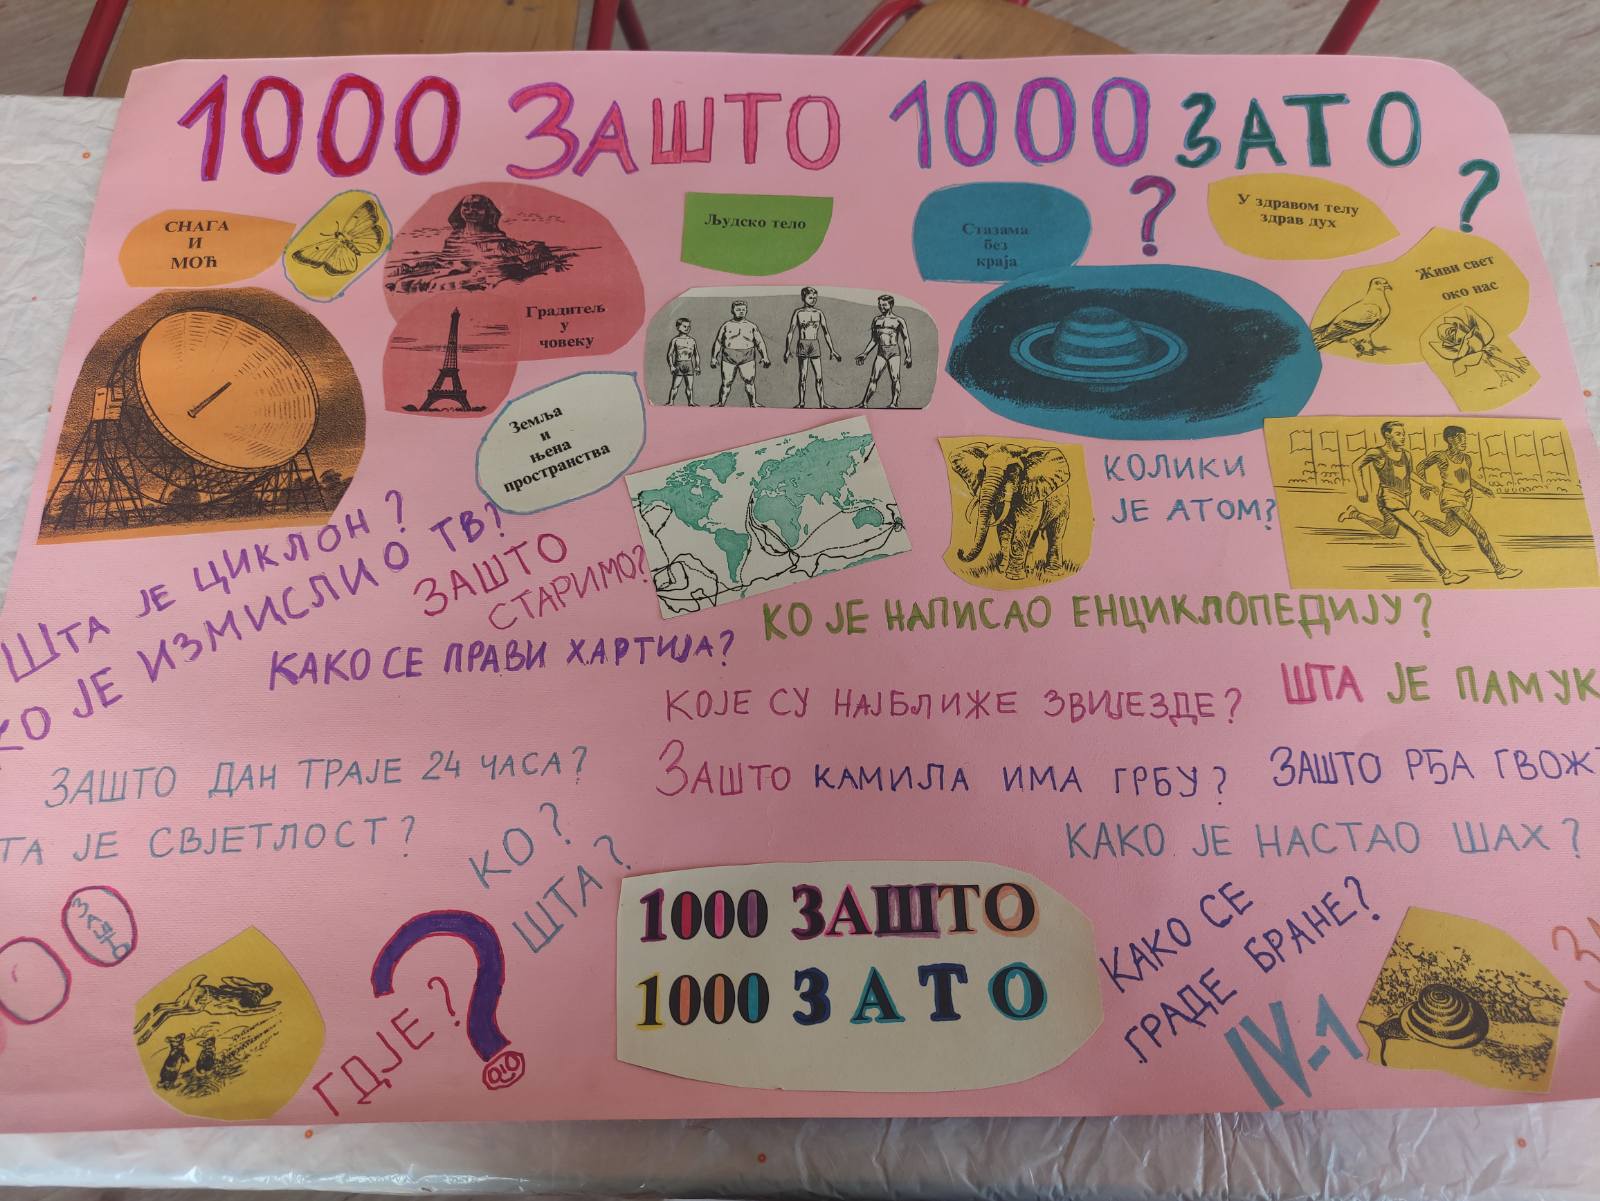 1000 ЗАШТО 1000 ЗАТО
?
?
СНАГА
И
МОЋ
Градитељ
у
човеку
Људско тело
Стазама
без
краја
У здравом телу
здрав дух
Живи свет
око нас
Земља
и
њена
пространства
КОЛИКИ
ЈЕ АТОМ?
ШТА ЈЕ ЦИКЛОН?
КО ЈЕ ИЗМИСЛИО ТВ?
ЗАШТО
СТАРИМО?
КАКО СЕ ПРАВИ ХАРТИЈА?
КО ЈЕ НАПИСАО ЕНЦИКЛОПЕДИЈУ?
КОЈЕ СУ НАЈБЛИЖЕ ЗВИЈЕЗДЕ?
ШТА ЈЕ ПАМУК
ЗАШТО ДАН ТРАЈЕ 24 ЧАСА?
ЗАШТО КАМИЛА ИМА ГРБУ?
ЗАШТО РЂА ГВОЖ
ТА ЈЕ СВЈЕТЛОСТ?
КО?
ШТА?
КАКО ЈЕ НАСТАО ШАХ?
ЗАШТО
ГДЈЕ?
?
1000 ЗАШТО
1000 ЗАТО
КАКО СЕ
ГРАДЕ БРАНЕ?
IV-1